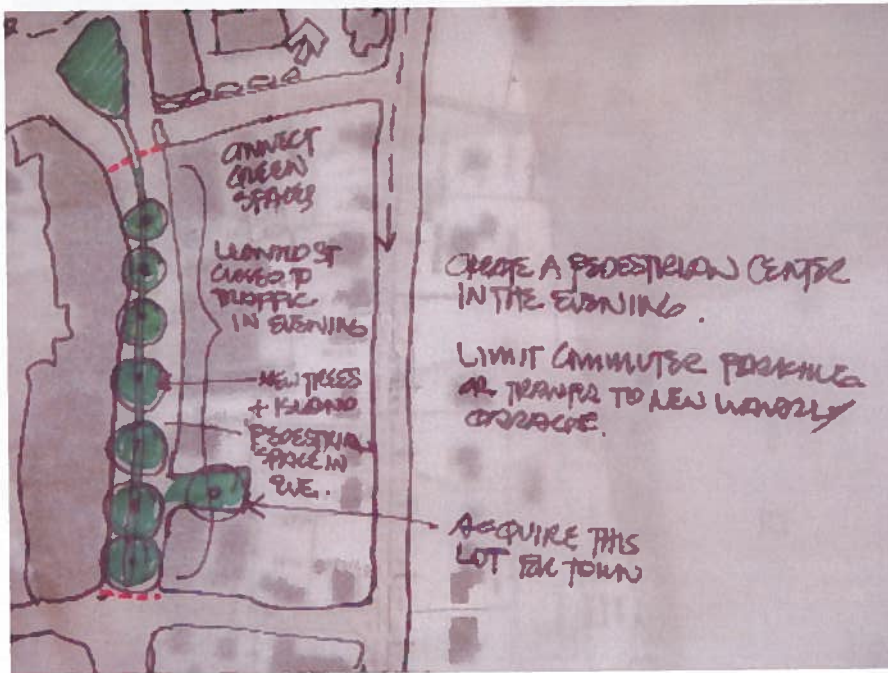 CONNECT
GREEN
SPACES
ST
CLOSED TO
TRAFFIC
IN EVENING
NEW TREES
+ ISLAND
PEDESTRIAN
SPACE IN
EVE.
CREATE A PEDESTRIAN CENTER
IN THE EVENING.
LIMIT COMMUTER PARKING
OR TRANFER TO NEW WAVERLY
GARAGE.
ACQUIRE THIS
LOT FOR TOWN